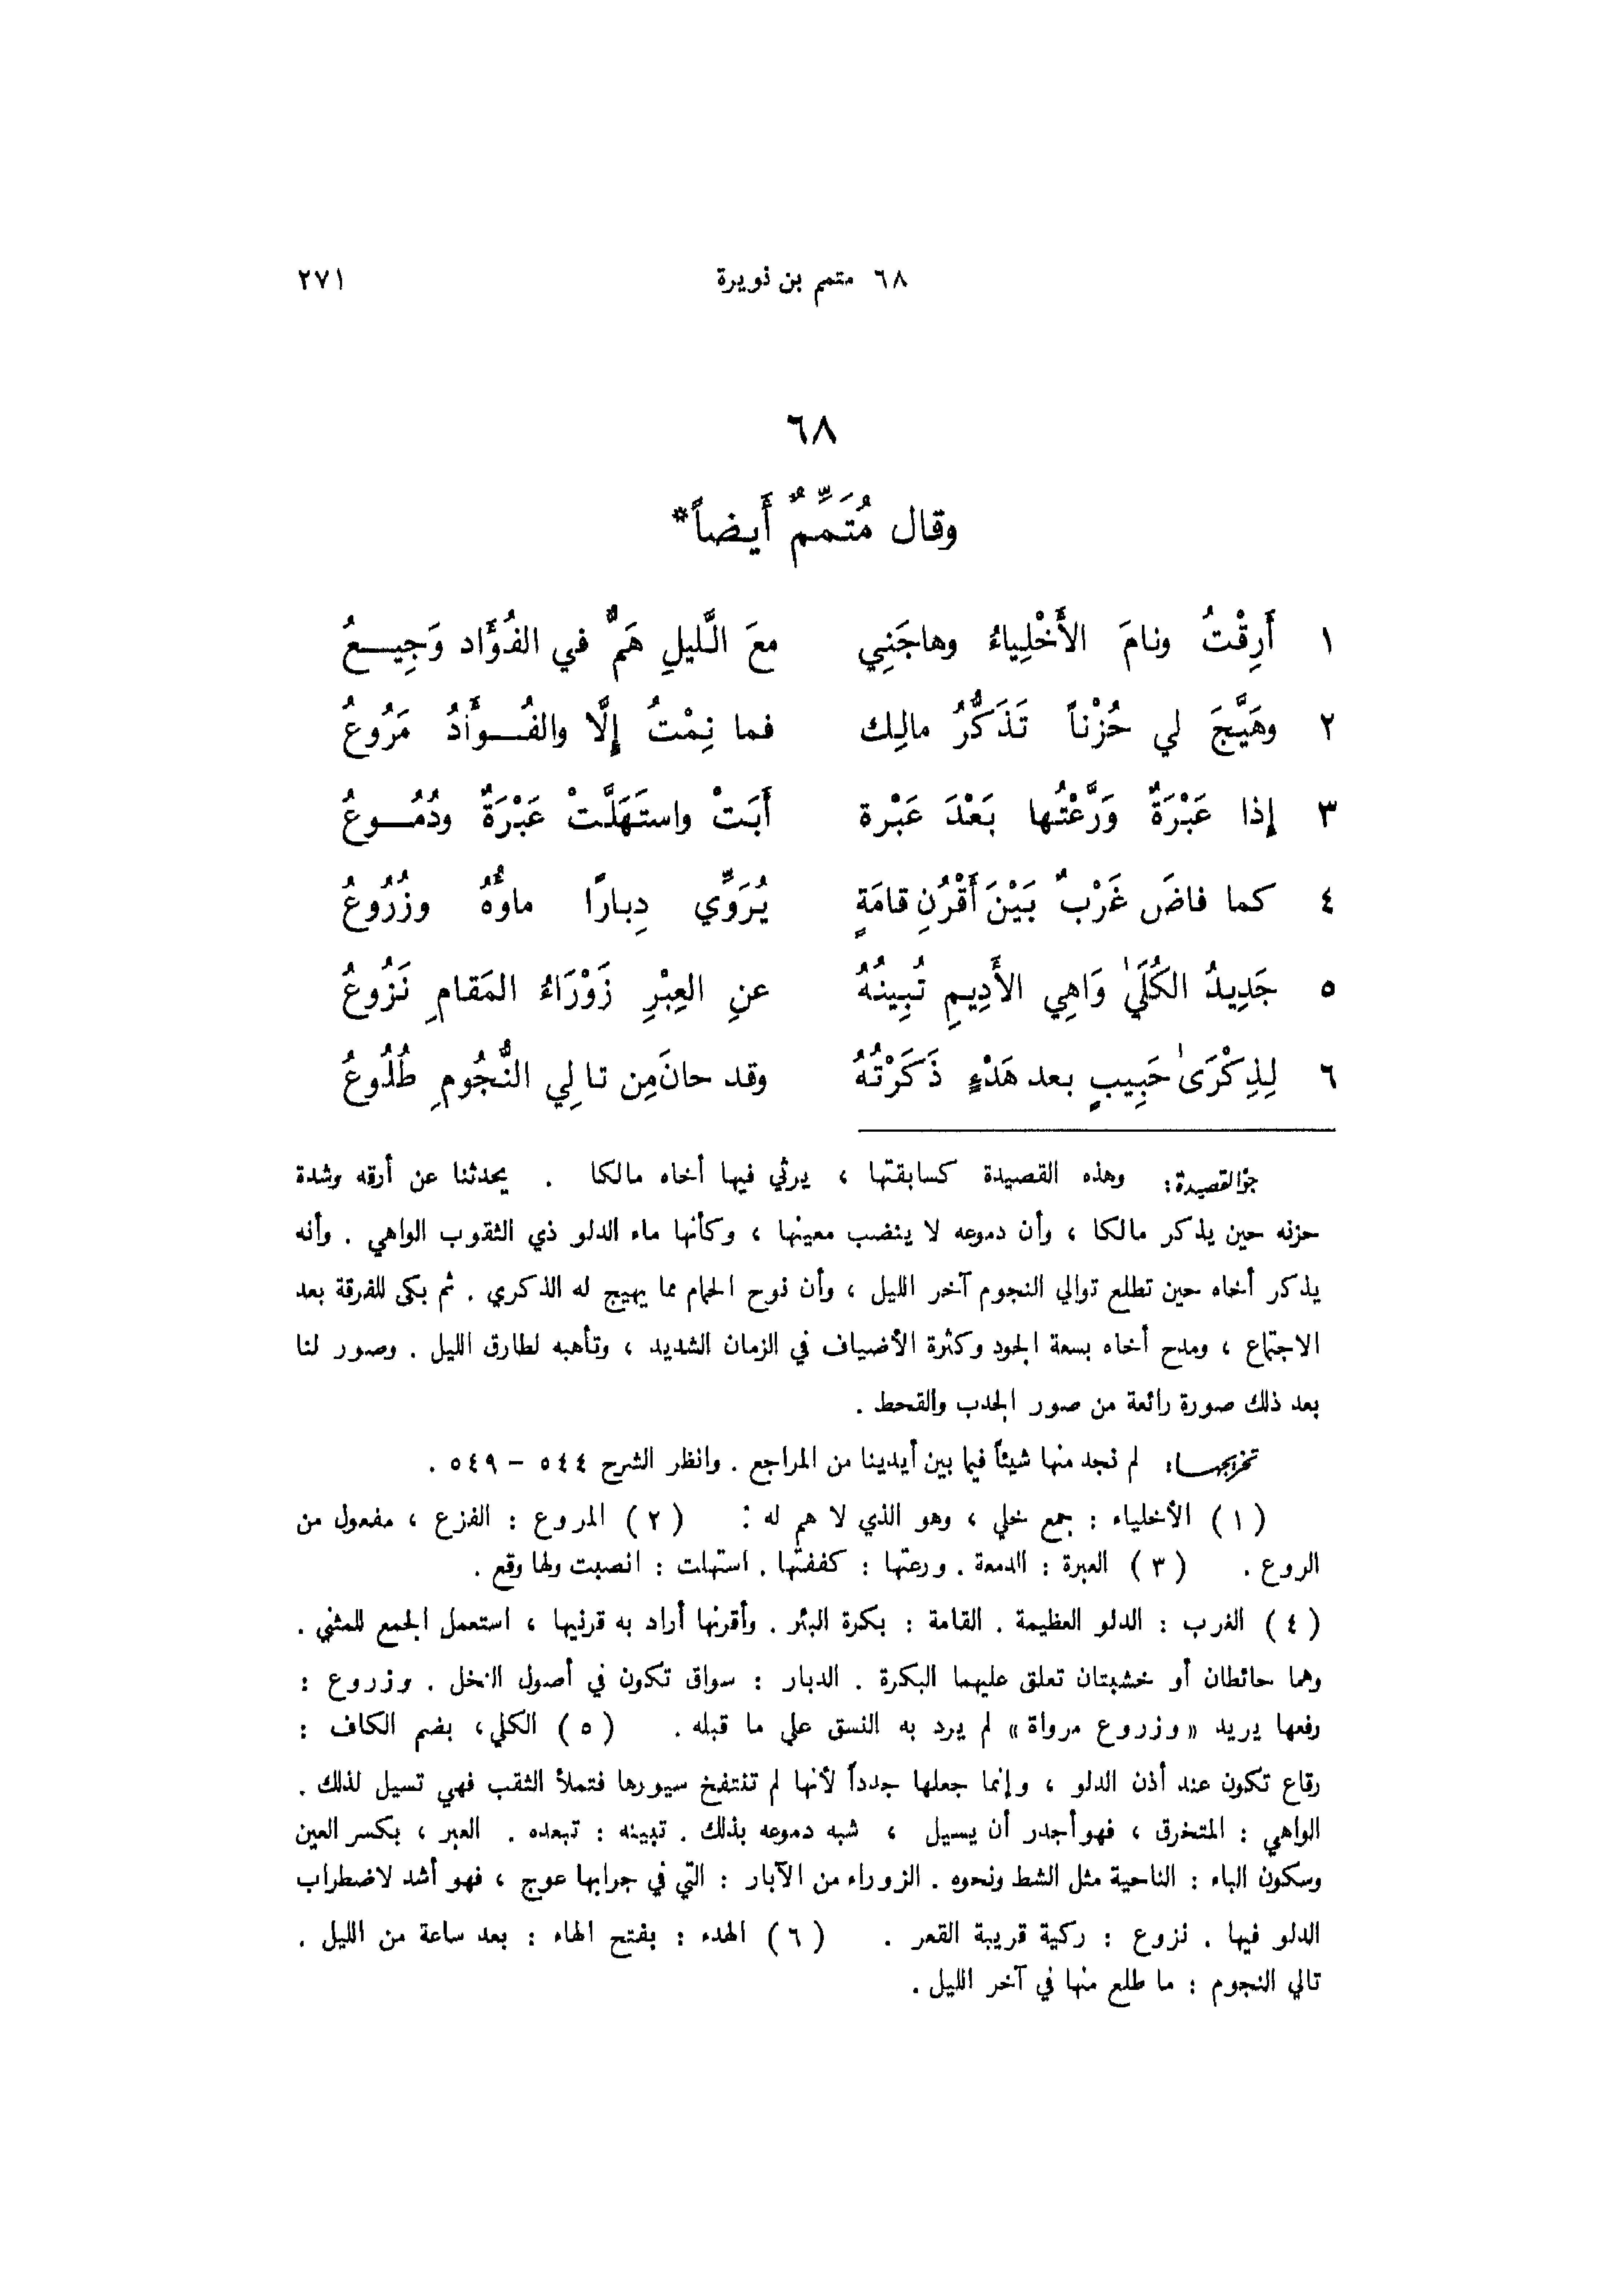 ٦٨ متمم بن نويرة ٢٧١
٦٨
وقال مُتَمِّمٌ أَيضاً*
١ أَرِقْتُ ونامَ الأَخْلِياءُ وهاجَنِي معَ الَّليلِ هَمٌّ في الفُؤَاد وَجِيـــعُ
٢ وهَيَّجَ لي حُزْناً تَذَكُّرُ مالِك فما نِمْتُ إِلَّا والفُــؤَادُ مَرُوعُ
٣ إِذا عَبْرَةٌ وَرَّعْتُها بَعْدَ عَبْرة أَبَتْ واستَهَلَّتْ عَبْرَةٌ ودُمُــوعُ
٤ كما فاضَ غَرْبٌ بَيْنَ أَقْرُنِ قامَةٍ يُرَوِّي دِبارًا ماؤُهُ وزُرُوعُ
٥ جَدِيدُ الكُلَىٰ وَاهِي الأَدِيمِ تُبِينُهُ عنِ العِبْرِ زَوْرَاءُ المَقامِ نَزُوعُ
٦ لِذِكْرَىٰ حَبِيبٍ بعد هَدْءٍ ذَكَرْتُهُ وقد حانَ مِن تالِي النُّجُومِ طُلُوعُ
جوّ القصيدة: وهذه القصيدة كسابقتها ، يرثي فيها أخاه مالكا . يحدثنا عن أرقه وشدة
حزنه حين يذكر مالكا ، وأن دموعه لا ينضب معينها ، وكأنها ماء الدلو ذي الثقوب الواهي . وأنه
يذكر أخاه حين تطلع توالي النجوم آخر الليل ، وأن نوح الحمام مما يهيج له الذكري . ثم بكى للفرقة بعد
الاجتماع ، ومدح أخاه بسعة الجود وكثرة الأضياف في الزمان الشديد ، وتأهبه لطارق الليل . وصور لنا
بعد ذلك صورة رائعة من صور الجدب والقحط .
تخريجهــا: لم نجد منها شيئاً فيما بين أيدينا من المراجع . وانظر الشرح ٥٤٤ – ٥٤٩ .
(١) الأخلياء : جمع خلي ، وهو الذي لا هم له : (٢) المروع : الفزع ، مفعول من
الروع . (٣) العبرة : الدمعة . ورعتها : كففتها . استهلت : انصبت ولها وقع .
(٤) الغرب : الدلو العظيمة . القامة : بكرة البئر . وأقرنها أراد به قرنيها ، استعمل الجمع للمثني .
وهما حائطان أو خشبتان تعلق عليهما البكرة . الدبار : سواق تكون في أصول النخل . وزروع :
رفعها يريد «وزروع مرواة» لم يرد به النسق علي ما قبله . (٥) الكلي، بضم الكاف :
رقاع تكون عند أذن الدلو ، وإنما جعلها جدداً لأنها لم تنتفخ سيورها فتملأ الثقب فهي تسيل لذلك .
الواهي : المتخرق ، فهو أجدر أن يسيل ، شبه دموعه بذلك . تبينه : تبعده . العبر ، بكسر العين
وسكون الباء : الناحية مثل الشط ونحوه . الزوراء من الآبار : التي في جرابها عوج ، فهو أشد لاضطراب
الدلو فيها . نزوع : ركية قريبة القعر . (٦) الهدء : بفتح الهاء : بعد ساعة من الليل .
تالي النجوم : ما طلع منها في آخر الليل .